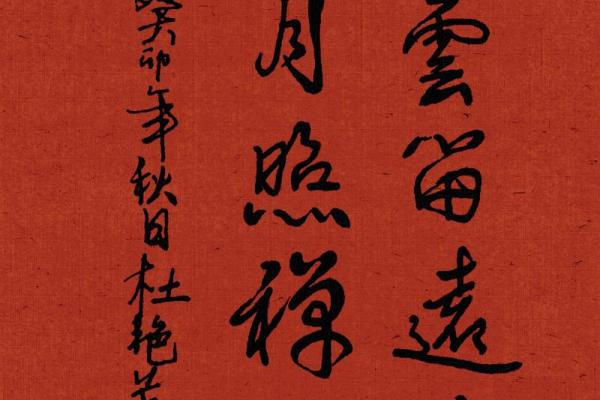 雲留遠
月照禪
癸卯年秋日杜艳